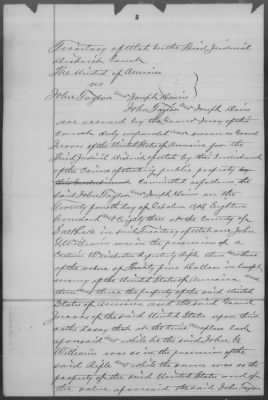 Territory of Utah in the Third Judicial
District Court
The United of America
vs
John Taylor and Joseph
John Taylor and Joseph
are accused by the Grand Jury of this
court duly empaneled and sworn as Grand
Jurors of the United States of America for the
Third Judicial District of Utah by this Indictment
of the Crime of public property by
committed as follows the
said John Taylor and Joseph on the
Twenty fourth day of October A.D. Eighteen
hundred and Eighty three at the County of
Salt Lake in said Territory of Utah one John
G. Williams was in the possession of a
Certain Winchester Repeating Rifle then and there
of the value of Twenty five Dollars in lawful
money of the United States of America and
then and there the property of the said United
States of America and the said Grand
Jurors of the said United States upon their
oaths do say that at the time and place last
aforesaid and while he the said John G.
Williams was so in the possession of the
said Rifle and while the same was so the
property of the said United States and of
the value aforesaid the said John Taylor